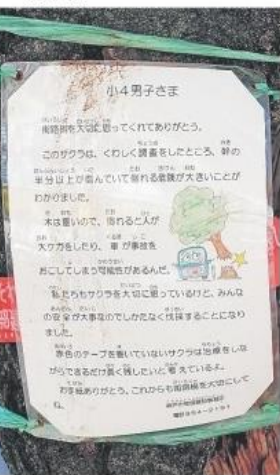 小4男子さま
街路樹を大切に思ってくれてありがとう。
このサクラは、くわしく調査をしたところ、幹の
半分以上が傷んでいて倒れる危険が大きいことが
わかりました。
木は重いので、倒れると人が
大ケガをしたり、車が事故を
おこしてしまう可能性があるんだ。
私たちもサクラを大切に思っているけど、みんな
の安全が大事なのでしかたなく伐採することになり
ました。
赤色のテープを巻いていないサクラは治療をしな
がらできるだけ長く残したいと考えているよ。
お手紙ありがとう。これからも街路樹を大切にして
ね。